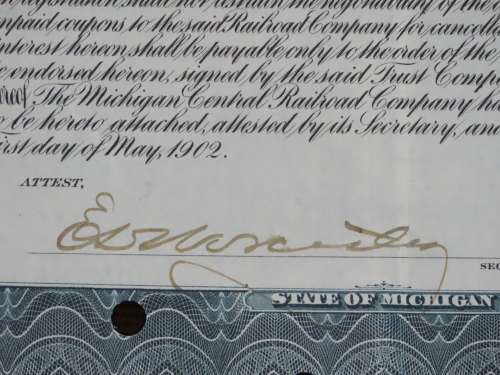 registration shall not restrain the negotiability of the
unpaid coupons to the said Railroad Company for cancella
interest hereon shall be payable only to the order of the
e endorsed hereon, signed by the said Trust Comp
hereof The Michigan Central Railroad Company ha
o be hereto attached, attested by its Secretary, and
first day of May, 1902.
ATTEST,
E D Worcester
SEC
STATE OF MICHIGAN